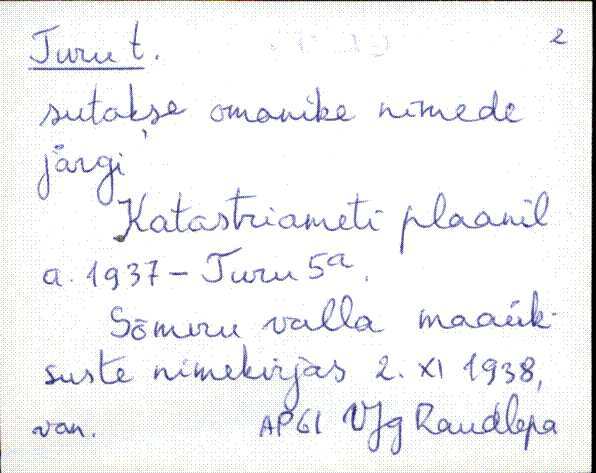 Turu t. 2
sutakse omanike nimede
järgi'
Katastriameti plaanil
a. 1937 – Turu 5a.
Sõmeru valla maaük-
suste nimekirjas 2. XI 1938,
van. AP61 VJg Raudlepa